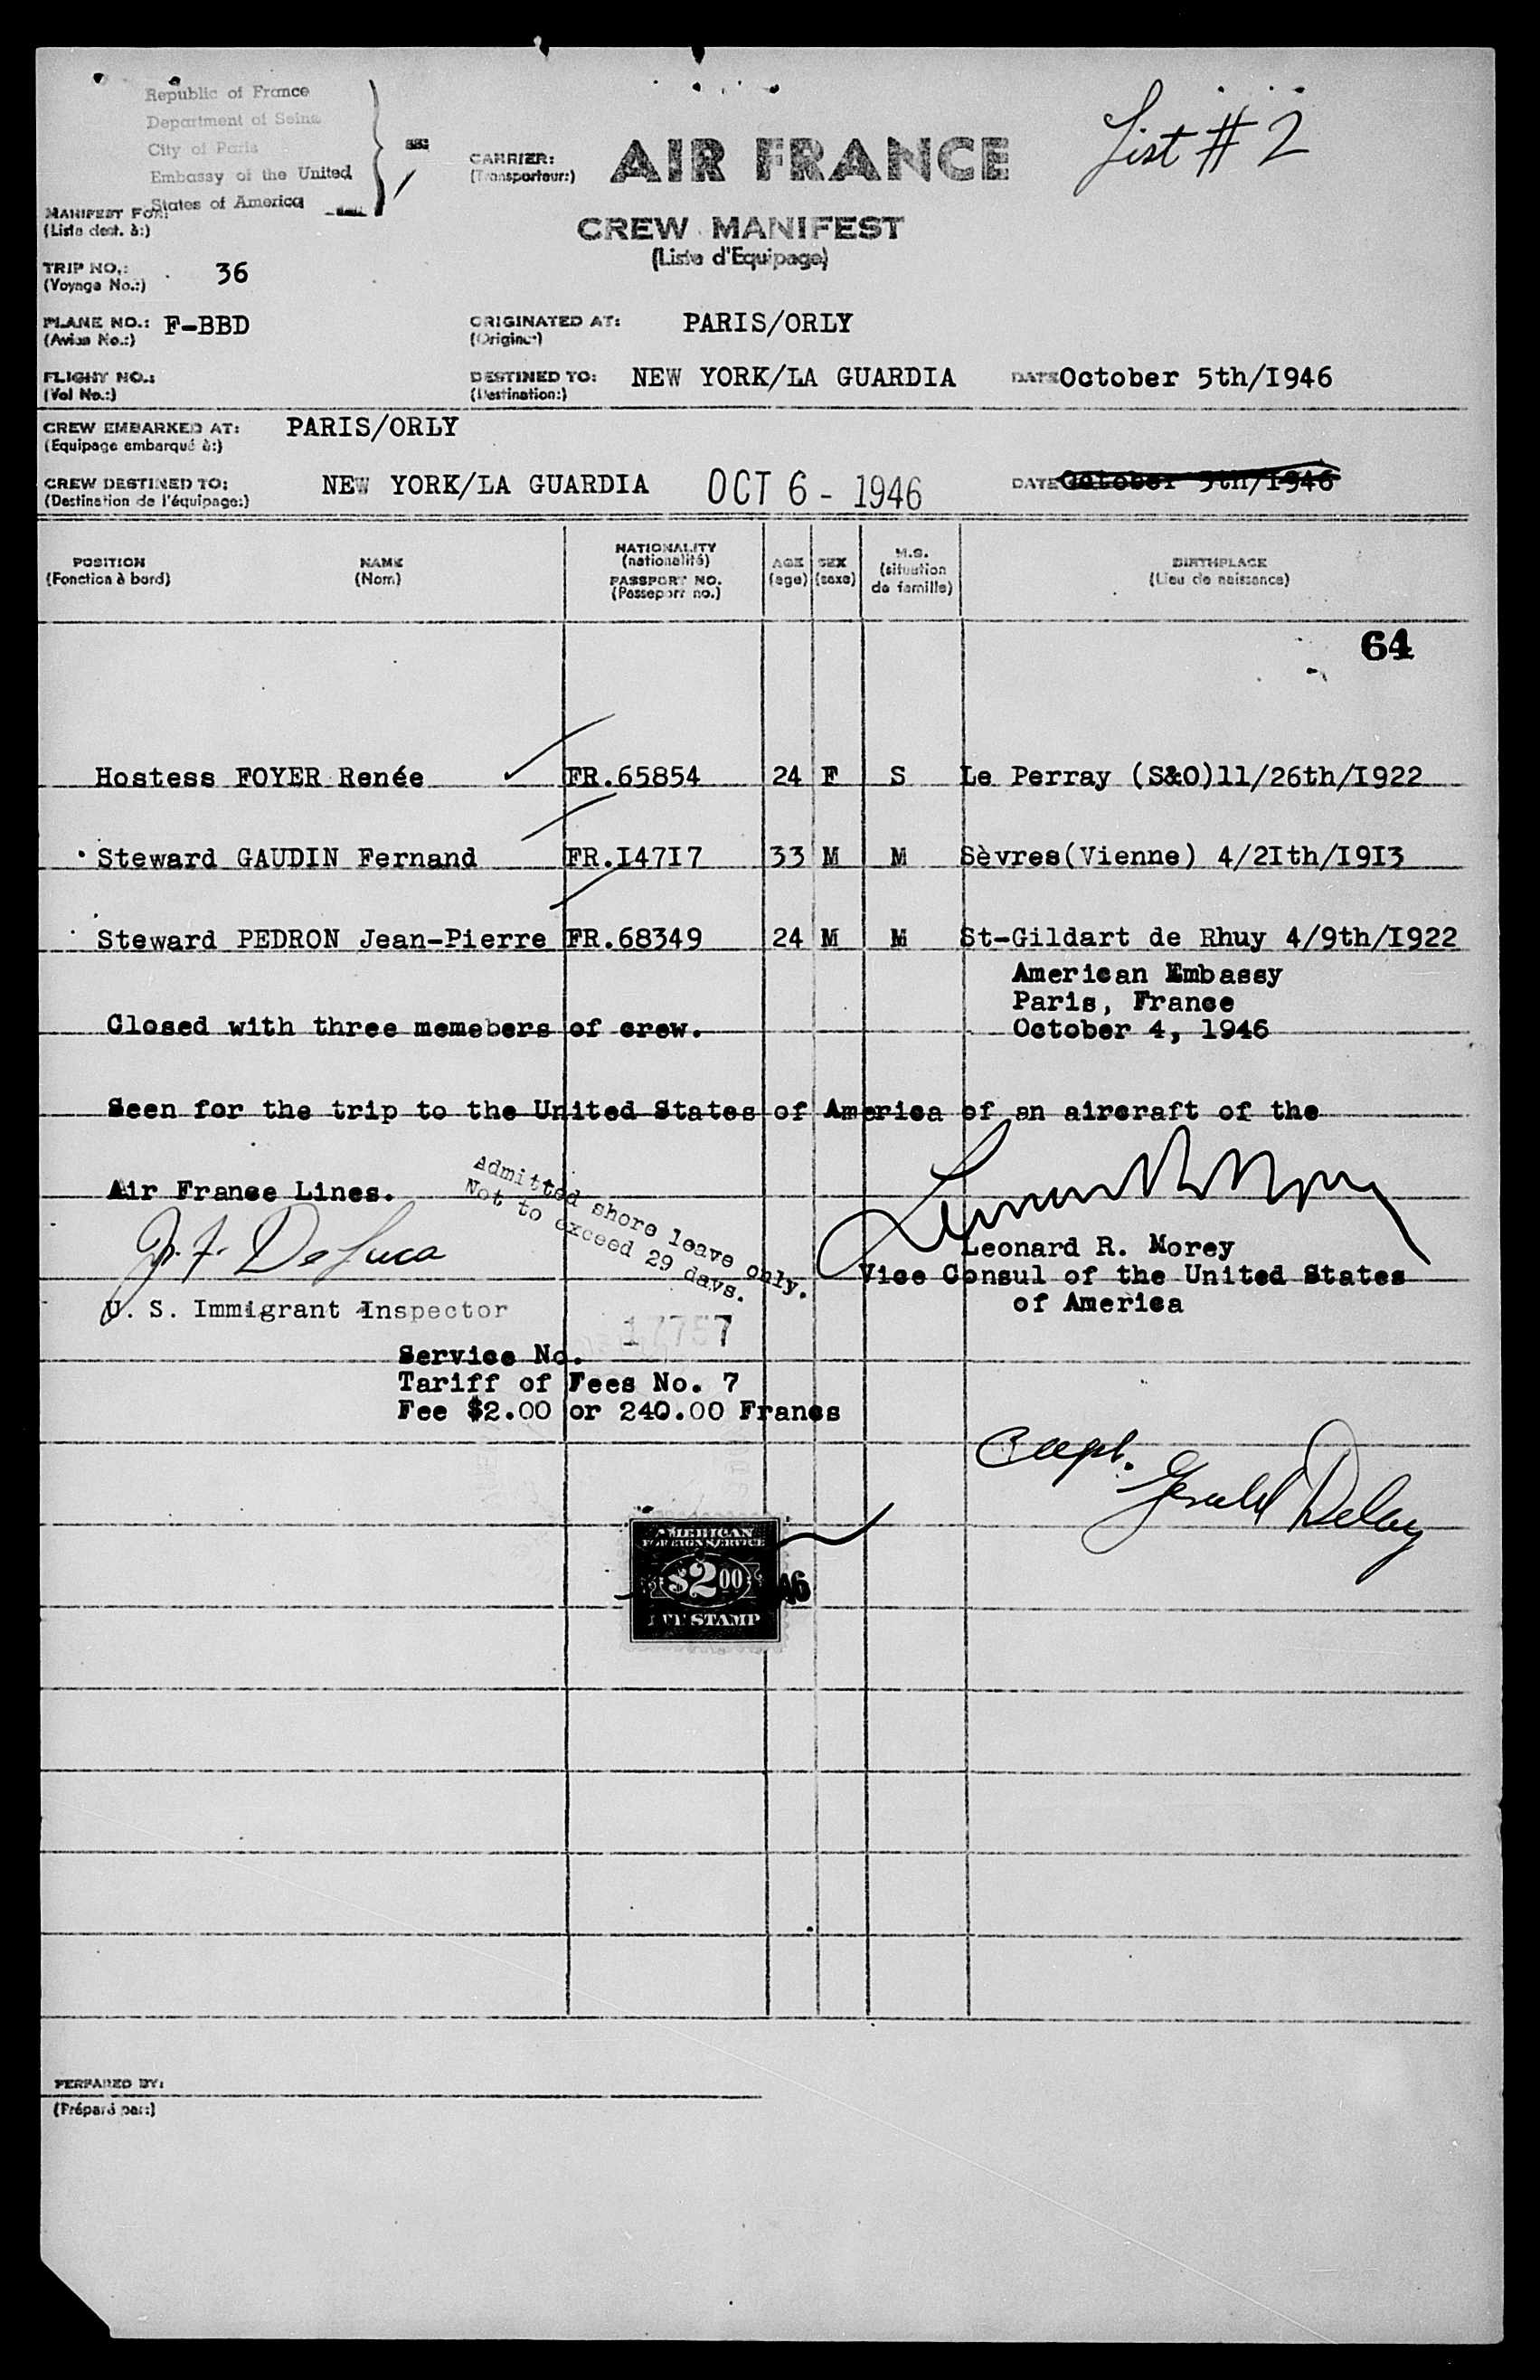 Republic of France
Department of Seine
City of Paris
Embassy of the United
States of America
SS:
List # 2
CARRIER:
(Transporteur:)
AIR FRANCE
CREW MANIFEST
(Liste d'Equipage)
MANIFEST FOR:
(Liste dest. à:)
TRIP NO.: 36
(Voyage No.:)
PLANE NO.: F-BBD
(Avion No.:)
ORIGINATED AT: PARIS/ORLY
(Origine:)
FLIGHT NO.:
(Vol No.:)
DESTINED TO: NEW YORK/LA GUARDIA DATE October 5th/I946
(Destination:)
CREW EMBARKED AT: PARIS/ORLY
(Equipage embarqué à:)
CREW DESTINED TO: NEW YORK/LA GUARDIA OCT 6 - 1946 DATE October 5th/I946
(Destination de l'équipage:)
POSITION
(Fonction à bord)
NAME
(Nom)
NATIONALITY
(nationalité)
PASSPORT NO.
(Passeport no.)
AGE
(age)
SEX
(sexe)
M.S.
(situation
de famille)
BIRTHPLACE
(Lieu de naissance)
64
Hostess FOYER Renée FR.65854 24 F S Le Perray (S&O)11/26th/I922
Steward GAUDIN Fernand FR.I47I7 33 M M Sèvres(Vienne) 4/2Ith/I9I3
Steward PEDRON Jean-Pierre FR.68349 24 M M St-Gildart de Rhuy 4/9th/I922
American Embassy
Paris, France
October 4, 1946
Closed with three memebers of crew.
Seen for the trip to the United States of America of an aircraft of the
Air France Lines.
Admitted shore leave only.
Not to exceed 29 days.
J. F. DeLuca
U. S. Immigrant Inspector
Leonard R. Morey
Leonard R. Morey
Vice Consul of the United States
of America
17757
Service No.
Tariff of Fees No. 7
Fee $2.00 or 240.00 Francs
Capt. Gerald Delay
AMERICAN
FOREIGN SERVICE
$2.00
FEE STAMP
46
PERPARED BY:
(Préparé par:)